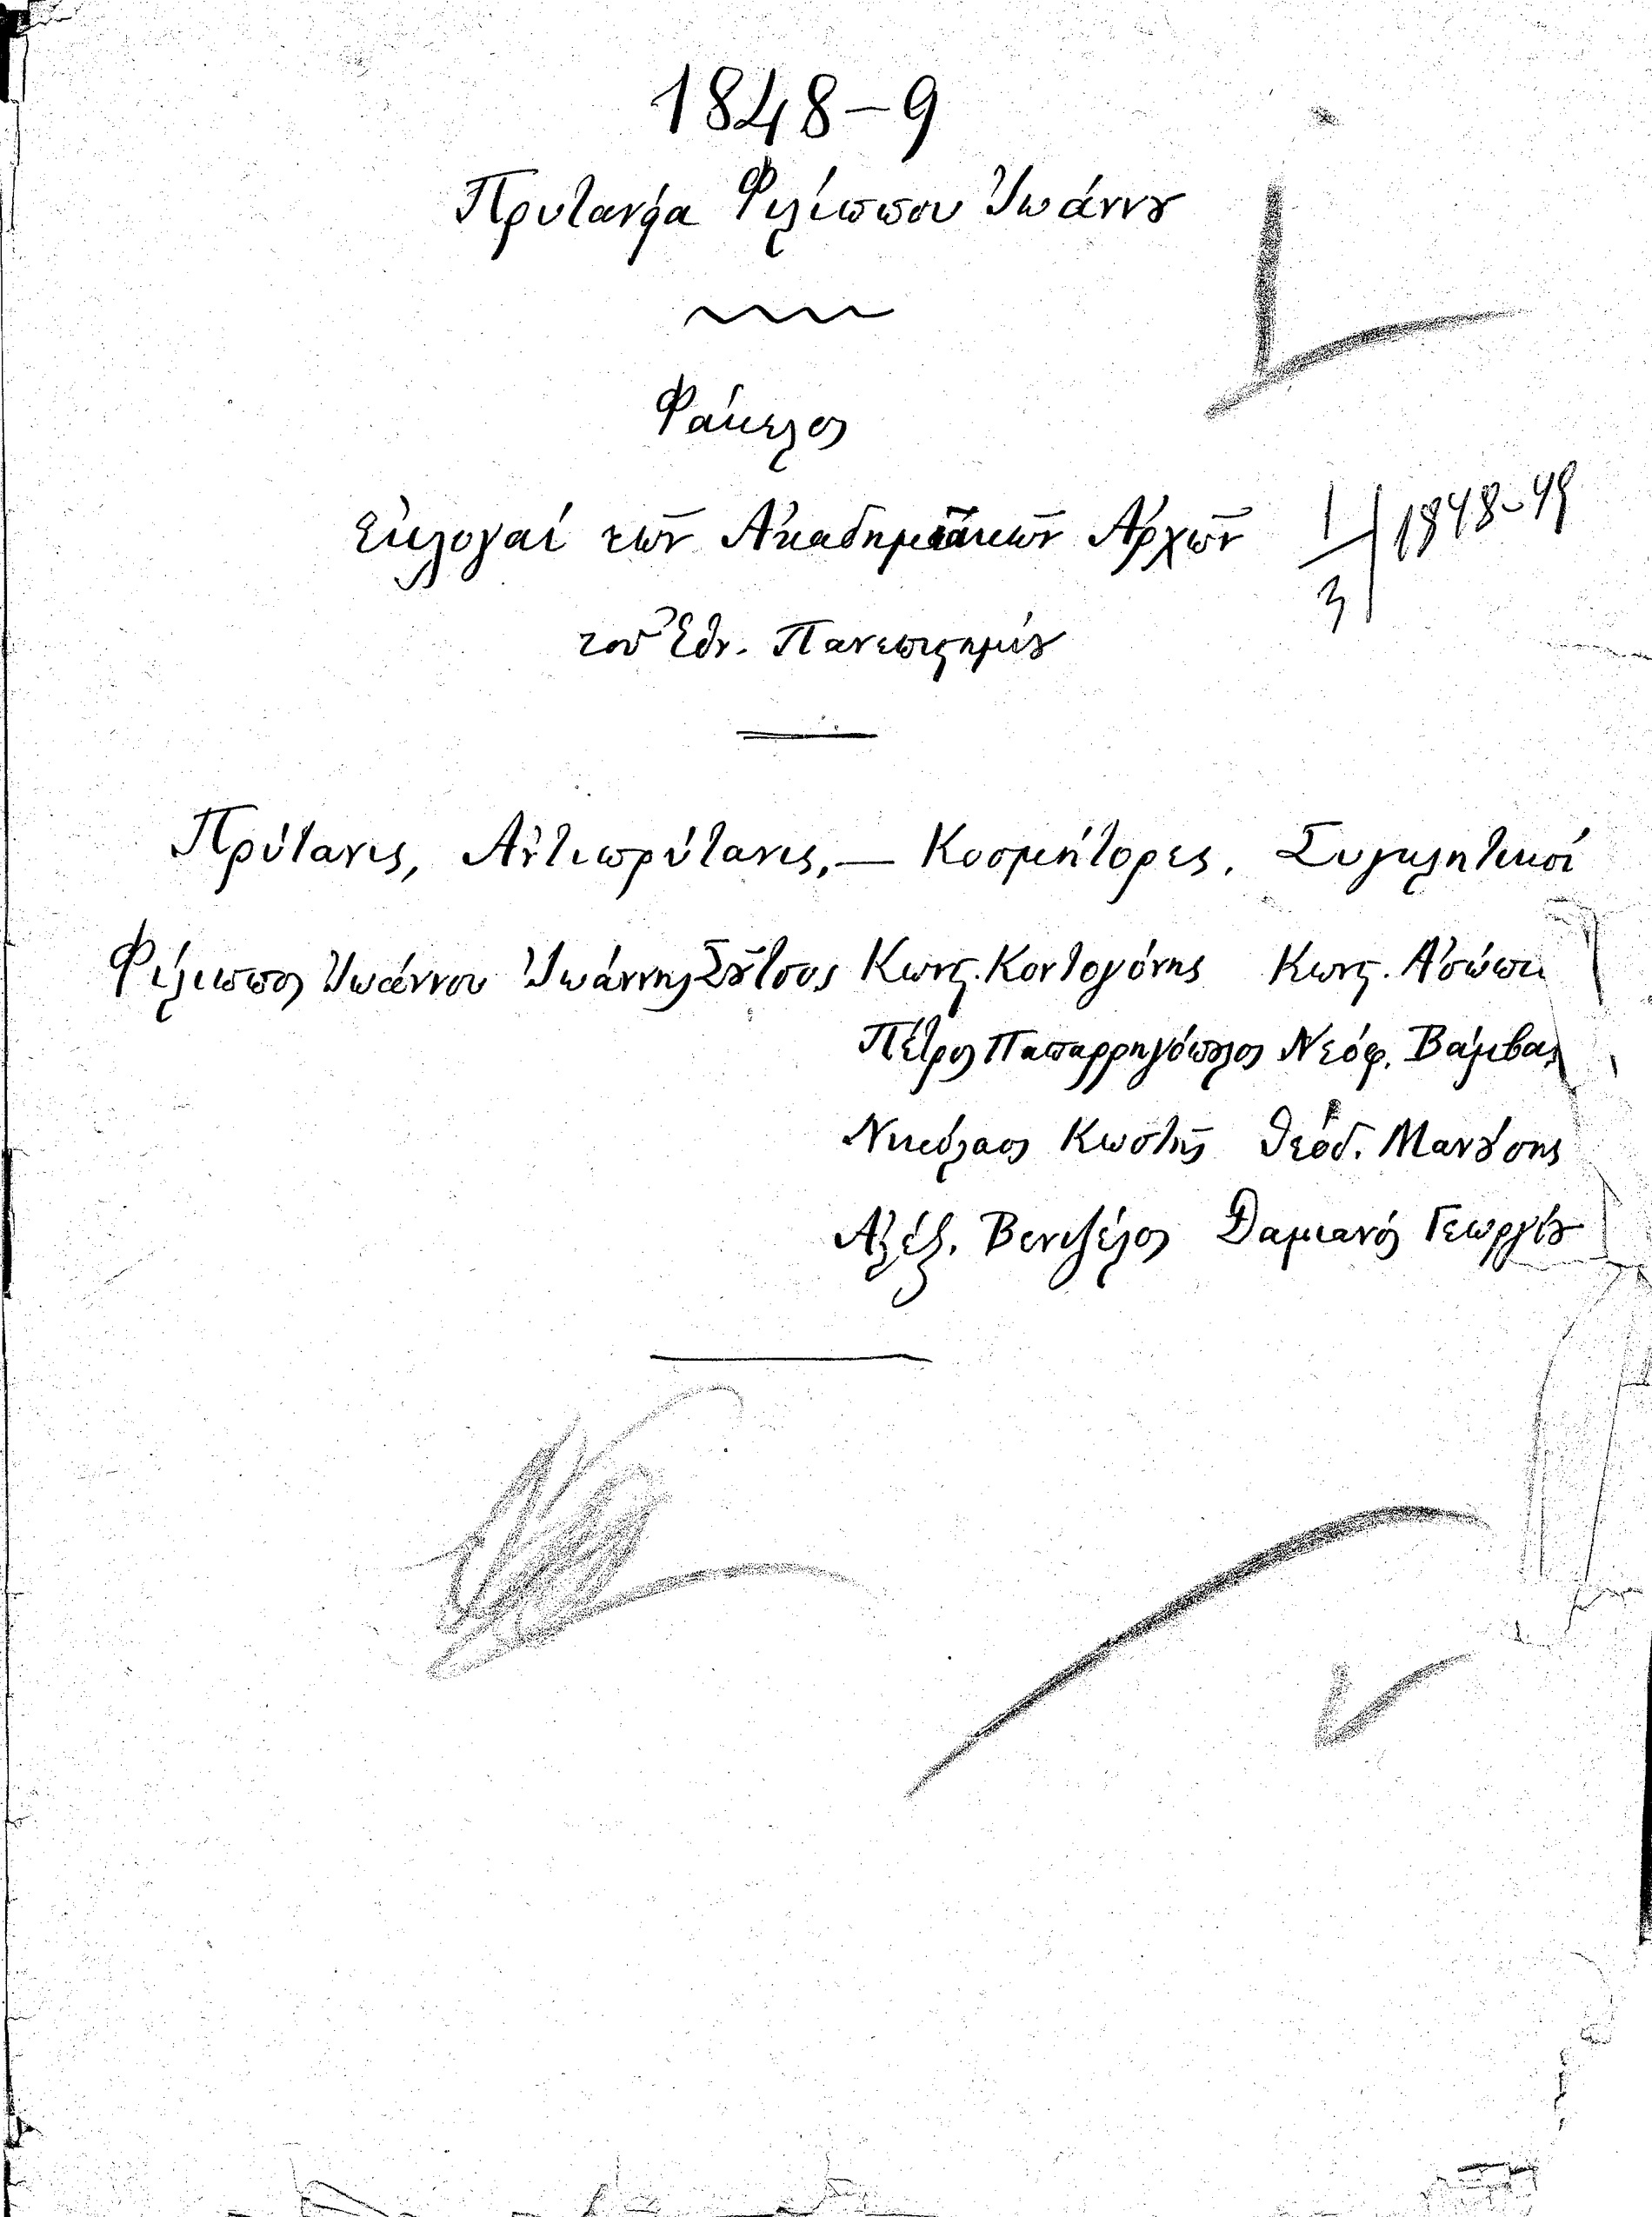 1848-9
Πρυτανεία Φιλίππου Ἰωάννȣ
Φάκελος
Ἐκλογαί τῶν Ἀκαδημαϊκῶν Ἀρχῶν
1/3 1848-49
τοῦ Ἐθν. Πανεπιϛημίȣ
Πρύτανις, Ἀντιπρύτανις,— Κοσμήτορες, Συγκλητικοί
Φίλιππος Ἰωάννου Ἰωάννης Σȣ͂τσος Κωνϛ. Κοντογόνης Κωνϛ. Ἀσώπι
Πέτρος Παπαρρηγόπȣλος Νεόφ. Βάμβας
Νικόλαος Κωστῆς Θεόδ. Μανȣ́σης
Ἀλέξ. Βενιζέλος Δαμιανός Γεωργίȣ